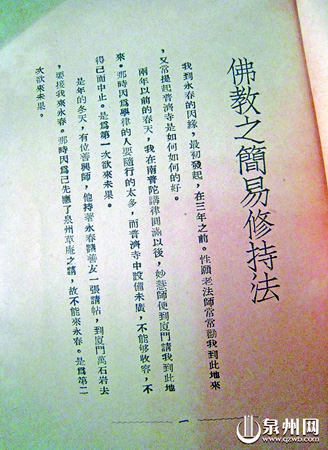 佛教之簡易修持法
我到永春的因緣，最初發起，在三年之前。性願老法師常常勸我到此地來
，又常提起普濟寺是如何如何的好。
兩年以前的春天，我在南普陀講律圓滿以後，妙慧師便到廈門請我到此地
來。那時因爲學律的人要隨行的太多，而普濟寺中設備未廣，不能夠收容，不
得已而中止。是爲第一次欲來未果。
是年的冬天，有位善興師，他持著永春諸善友一張請帖，到廈門萬石岩去
，要接我來永春。那時因爲已先應了泉州草庵之請，故不能來永春。是爲第二
次欲來未果。
一
泉州网
www.qzwb.com